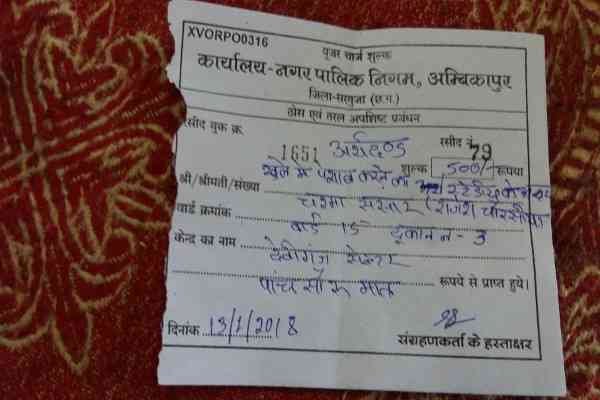 XVORPO0316
पुजर चार्ज शुल्क
कार्यालय-नगर पालिक निगम, अम्बिकापुर
जिला-सरगुजा (छ.ग.)
ठोस एवं तरल अपशिष्ट प्रबंधन
रसीद बुक क्र. 1651 अर्थदण्ड रसीद नं. 79
खुले में पेशाब करने का शुल्क 500/- रुपया
श्री/श्रीमती/संख्या
चश्मा सरकार (राजेश चौरसिया
वार्ड क्रमांक वार्ड 15 दुकान न - 3
केन्द्र का नाम देवीगंज सेन्टर
पांच सौ रु मात्र रूपये से प्राप्त हुये।
दिनांक 13/1/2018
संग्रहणकर्ता के हस्ताक्षर